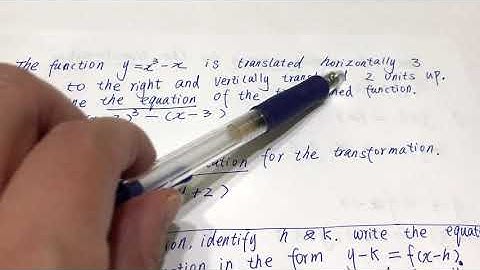 the function y = x³ - x is translated horizontally 3
to the right and vertically 2 units up.
the equation of the function.
)³ - (x - 3)
for the transformation.
+ 2)
identify h & k. write the
in the form y - k = f(x - h).